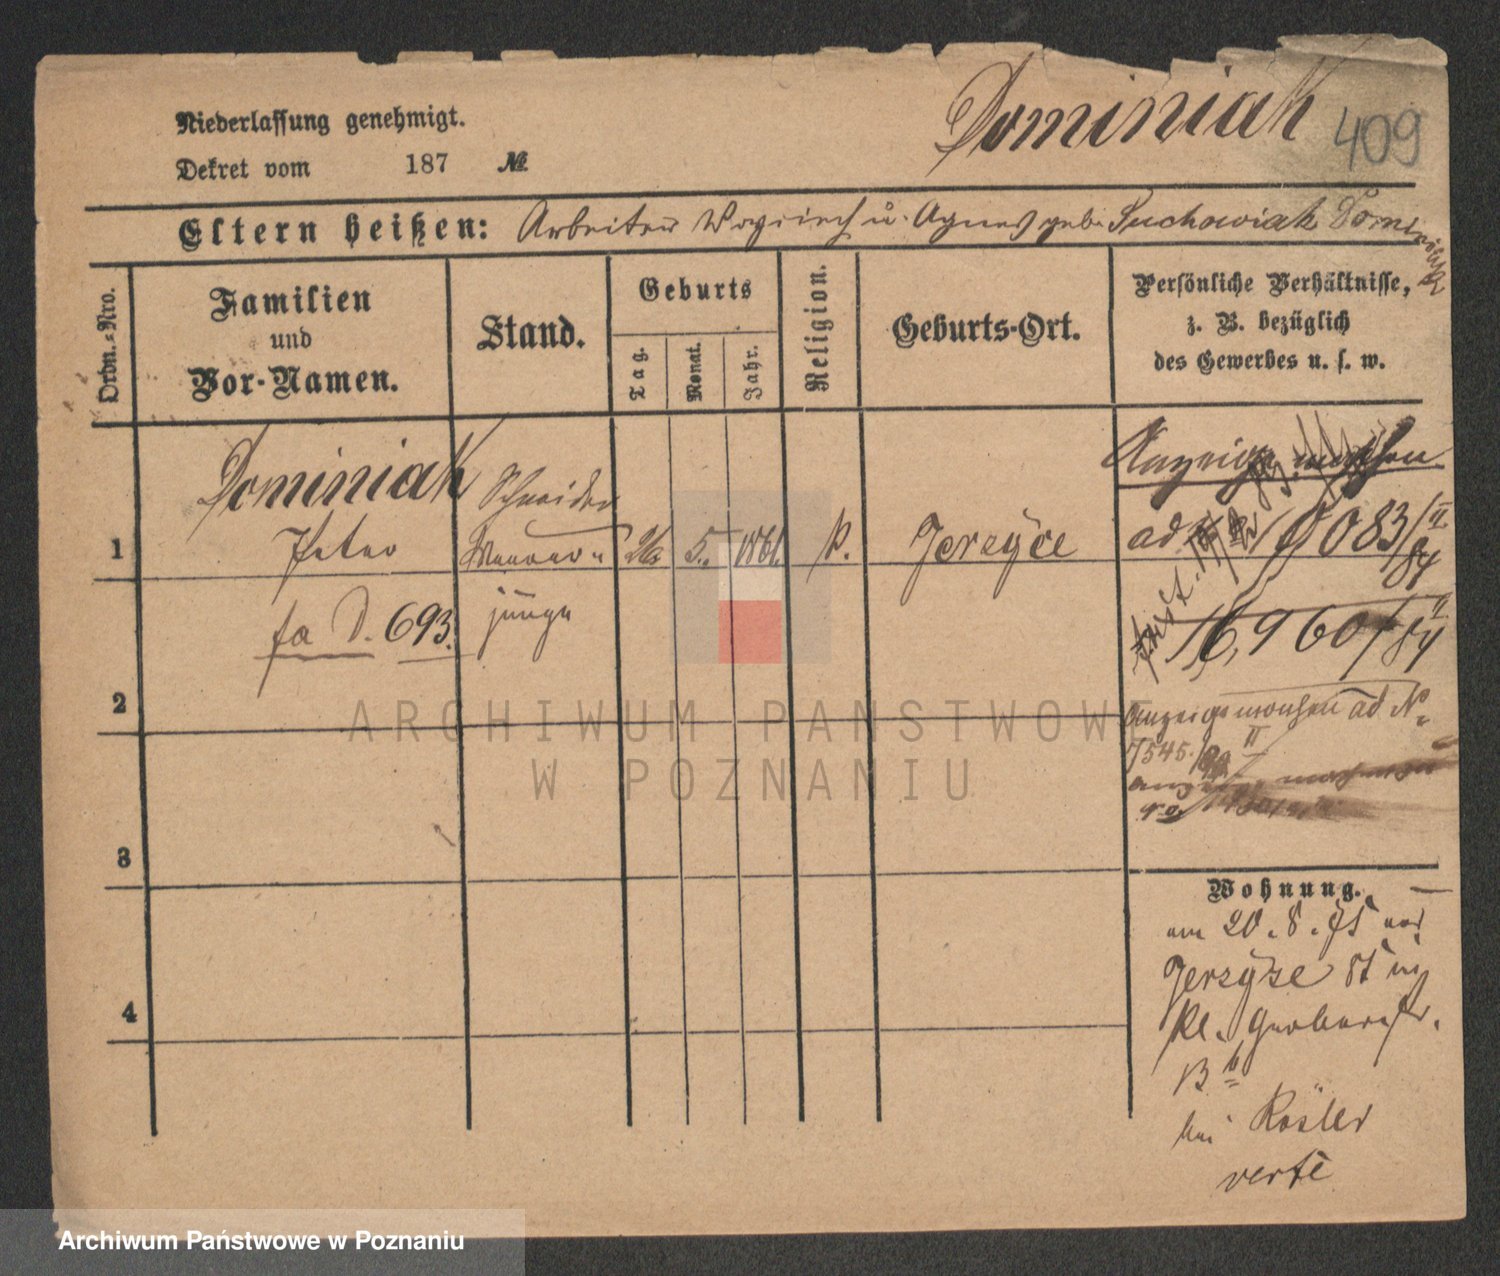 Dominiak 409
Niederlassung genehmigt.
Dekret vom 187 №
Eltern heißen: Arbeiter Woyciech u. Agnes geb. Suchowiak Dominiak
Ordn.-Nro.
Familien
und
Vor-Namen.
Stand.
Geburts
Tag.
Monat.
Jahr.
Religion.
Geburts-Ort.
Persönliche Verhältnisse,
z. B. bezüglich
des Gewerbes u. s. w.
Dominiak Schneider
1 Peter 26. 5. 1861. Jereyce
fa D. 693. junge
2
3
4
Anzeige machen
ad 10083/II 84
16,960/II 84
Anzeige machen ad N.
7545./90 II
Wohnung.
am 20. 8. 75 von
Jersyze
Kl. Gerberstr.
bei Rösler
verte
ARCHIWUM PAŃSTWOWE
W POZNANIU
Archiwum Państwowe w Poznaniu